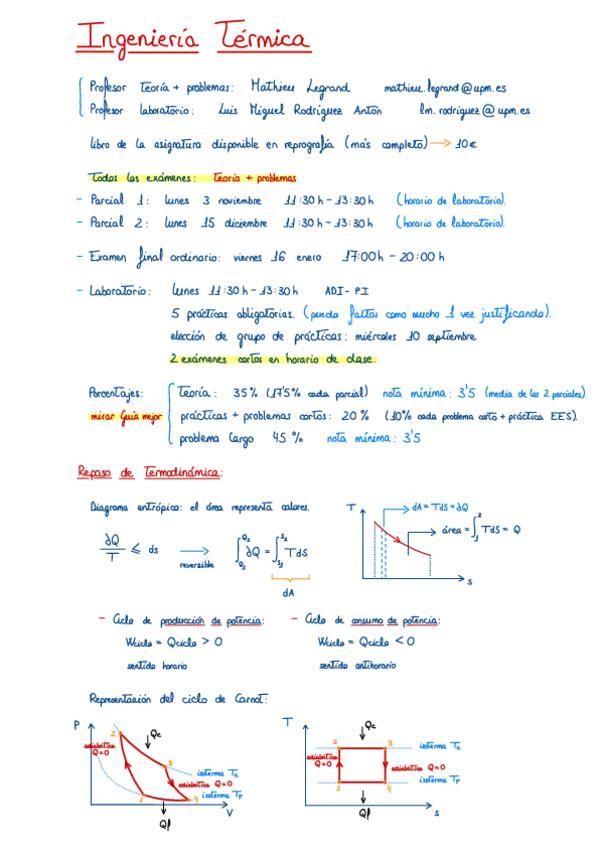 Ingeniería Térmica
Profesor Teoría + problemas: Mathieu Legrand mathieu.legrand@upm.es
Profesor laboratorio: Luis Miguel Rodríguez Antón lm.rodriguez@upm.es
libro de la asignatura disponible en reprografía (más completo) → 10€
Todos los exámenes: Teoría + problemas
- Parcial 1: lunes 3 noviembre 11:30h - 13:30h (horario de laboratorio).
- Parcial 2: lunes 15 diciembre 11:30h - 13:30h (horario de laboratorio).
- Examen final ordinario: viernes 16 enero 17:00h - 20:00h
- Laboratorio: lunes 11:30h - 13:30h ADI-PI
5 prácticas obligatorias. (puedo faltar como mucho 1 vez justificando).
elección de grupo de prácticas: miércoles 10 septiembre
2 exámenes cortos en horario de clase.
Porcentajes: Teoría: 35% (17'5% cada parcial) nota mínima: 3'5 (media de los 2 parciales)
mirar Guía mejor prácticas + problemas cortos: 20% (10% cada problema corto + práctica EES).
problema largo 45% nota mínima: 3'5
Repaso de Termodinámica:
Diagrama entrópico: el área representa calores.
∂Q/T ≤ ds → reversible ∫_{Q1}^{Q2} ∂Q = ∫_{s1}^{s2} TdS
dA
T
dA = TdS = ∂Q
área = ∫_1^2 TdS = Q
s
- Ciclo de producción de potencia: - Ciclo de consumo de potencia:
Wciclo = Qciclo > 0 Wciclo = Qciclo < 0
sentido horario sentido antihorario
Representación del ciclo de Carnot:
P
2
Qc
adiabática
Q=0
3
isoterma Tc
adiabática Q=0
1
4
isoterma TF
V
Qf
T
Qc
2 3
isoterma Tc
adiabática
Q=0
adiabática Q=0
1 4
isoterma TF
Qf
s